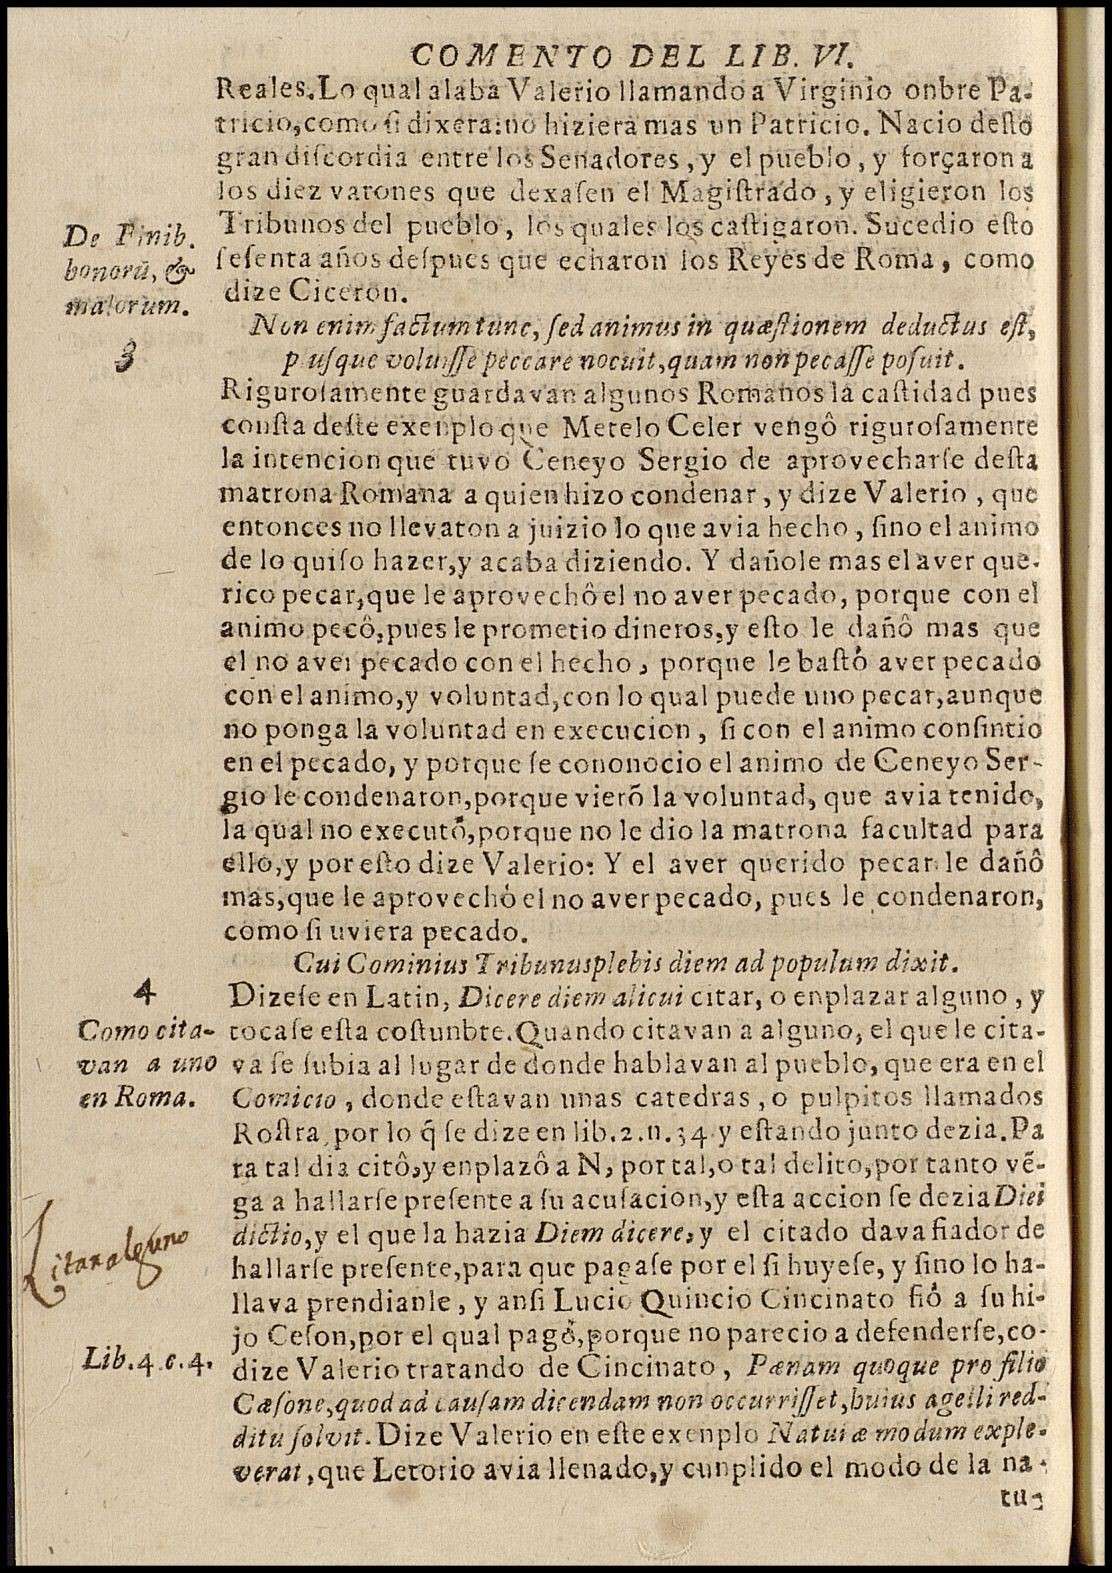 COMENTO DEL LIB. VI.
Reales. Lo qual alaba Valerio llamando a Virginio onbre Pa-
tricio, como si dixera: no hiziera mas un Patricio. Nacio desto
gran discordia entre los Senadores, y el pueblo, y forçaron a
los diez varones que dexasen el Magistrado, y eligieron los
Tribunos del pueblo, los quales los castigaron. Sucedio esto
sesenta años despues que echaron los Reyes de Roma, como
dize Ciceron.
De Finib.
bonorū, &
malorum.
3
Non enim factum tunc, sed animus in quæstionem deductus est,
plusque voluisse peccare nocuit, quam non pecasse posuit.
Rigurosamente guardavan algunos Romanos la castidad pues
consta deste exenplo que Metelo Celer vengô rigurosamente
la intencion que tuvo Ceneyo Sergio de aprovecharse desta
matrona Romana a quien hizo condenar, y dize Valerio, que
entonces no llevaron a juizio lo que avia hecho, sino el animo
de lo quiso hazer, y acaba diziendo. Y dañole mas el aver que-
rico pecar, que le aprovechô el no aver pecado, porque con el
animo pecô, pues le prometio dineros, y esto le dañô mas que
el no aver pecado con el hecho, porque le bastó aver pecado
con el animo, y voluntad, con lo qual puede uno pecar, aunque
no ponga la voluntad en execucion, si con el animo consintio
en el pecado, y porque se cononocio el animo de Ceneyo Ser-
gio le condenaron, porque vierō la voluntad, que avia tenido,
la qual no executó, porque no le dio la matrona facultad para
ello, y por esto dize Valerio: Y el aver querido pecar le dañô
mas, que le aprovechó el no aver pecado, pues le condenaron,
como si uviera pecado.
Cui Cominius Tribunusplebis diem ad populum dixit.
4
Como cita-
van a uno
en Roma.
Dizese en Latin, Dicere diem alicui citar, o enplazar alguno, y
tocase esta costunbre. Quando citavan a alguno, el que le cita-
va se subia al lugar de donde hablavan al pueblo, que era en el
Comicio, donde estavan unas catedras, o pulpitos llamados
Rostra, por lo q̄ se dize en lib. 2. n. 34. y estando junto dezia. Pa
ra tal dia citô, y enplazô a N, por tal, o tal delito, por tanto vē-
ga a hallarse presente a su acusacion, y esta accion se dezia Diei
dictio, y el que la hazia Diem dicere, y el citado dava fiador de
hallarse presente, para que pagase por el si huyese, y sino lo ha-
llava prendianle, y ansi Lucio Quincio Cincinato fió a su hi-
jo Ceson, por el qual pagó, porque no parecio a defenderse, co-
dize Valerio tratando de Cincinato, Pænam quoque pro filio
Cæsone, quod ad causam dicendam non occurrisset, huius agelli red-
ditu solvit. Dize Valerio en este exenplo Naturæ modum exple-
verat, que Letorio avia llenado, y cunplido el modo de la na-
Citar alguno
Lib. 4. c. 4.
tu-